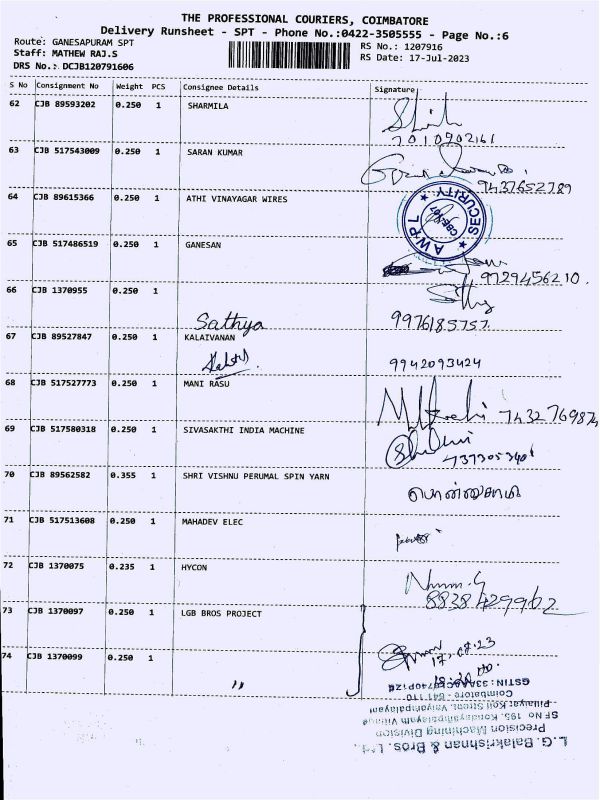 THE PROFESSIONAL COURIERS, COIMBATORE
Delivery Runsheet - SPT - Phone No.:0422-3505555 - Page No.:6
Route: GANESAPURAM SPT
Staff: MATHEW RAJ.S
DRS No.: DCJB120791606
RS No.: 1207916
RS Date: 17-Jul-2023
S No Consignment No Weight PCS Consignee Details Signature
62 CJB 89593202 0.250 1 SHARMILA
7010902161
63 CJB 517543009 0.250 1 SARAN KUMAR
9437652789
64 CJB 89615366 0.250 1 ATHI VINAYAGAR WIRES
AWPL SECURITY
65 CJB 517486519 0.250 1 GANESAN
9729456210.
66 CJB 1370955 0.250 1
Sathya
9976185757.
67 CJB 89527847 0.250 1 KALAIVANAN
9942093424
68 CJB 517527773 0.250 1 MANI RASU
69 CJB 517580318 0.250 1 SIVASAKTHI INDIA MACHINE
70 CJB 89562582 0.355 1 SHRI VISHNU PERUMAL SPIN YARN
பொன்னுசாமி
71 CJB 517513608 0.250 1 MAHADEV ELEC
72 CJB 1370075 0.235 1 HYCON
8838429962
73 CJB 1370097 0.250 1 LGB BROS PROJECT
17.07.23
74 CJB 1370099 0.250 1 "
Coimbatore - 641 110
Precision Machining Division
L.G. Balakrishnan & Bros. Ltd.